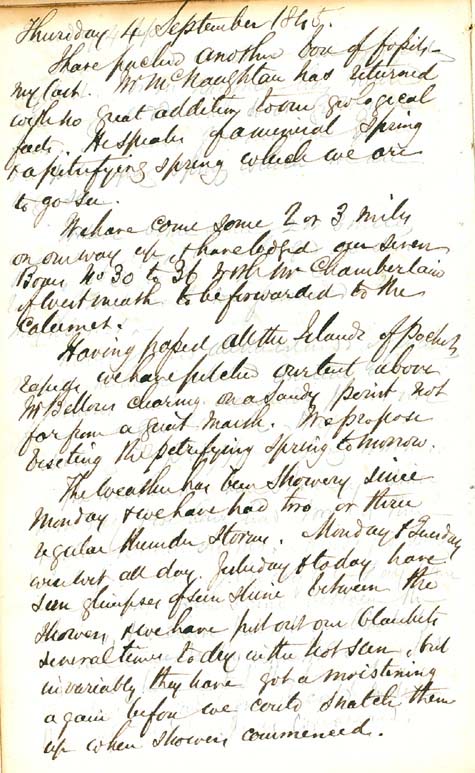 Thursday 4 September 1845.
I have packed another box of fossils –
my last. Mr McNaughtan has returned
with no great addition to our geological
facts. He speaks of a mineral spring
& a petrifying spring which we are
to go see.
We have come some 2 or 3 miles
on our way up & have lodged our seven
Boxes No 30 to 36 with Mr Chamberlain
of Westmeath to be forwarded to the
Calumet.
Having passed all the Islands of Rocher
we have pitched our tent above
Mr Bellows clearing on a sandy point not
far from a great marsh. We propose
the petrifying spring tomorrow.
The weather has been showery since
Monday & we have had two or three
regular thunder storms. Monday & Tuesday
were wet all day. & today have
seen glimpses of sun shine between the
showers & we have put out our blankets
several times to dry in the hot sun, but
invariably they have got a moistening
again before we could snatch them
up when showers commenced.